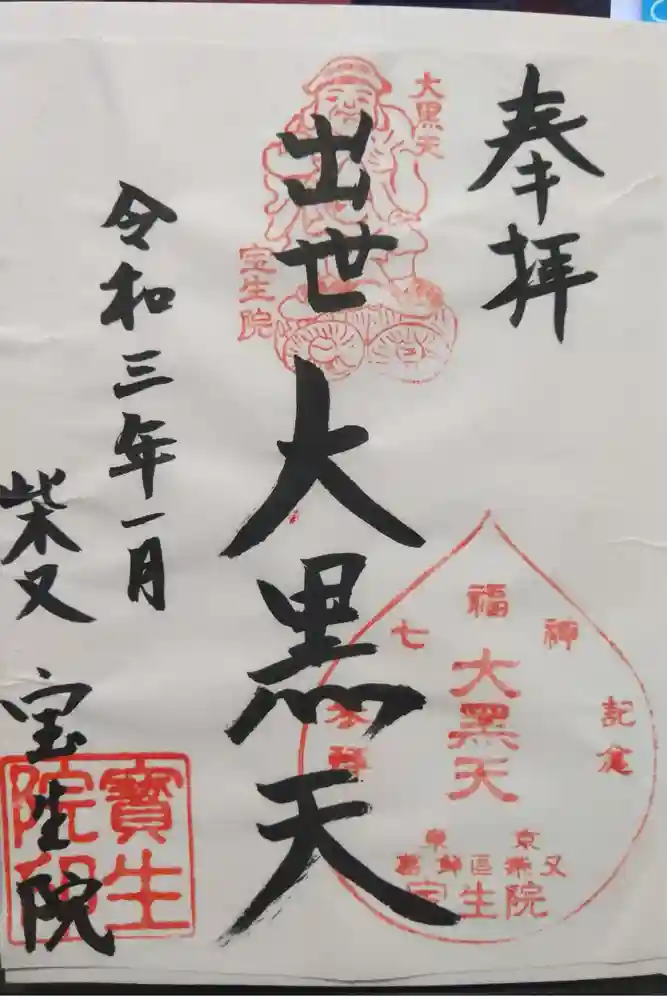 奉拝
大黒天
宝生院
出世大黒天
令和三年一月
柴又 宝生院
七福神
参拝
記念
大黑天
東京
葛飾區柴又
宝生院
寶生院印